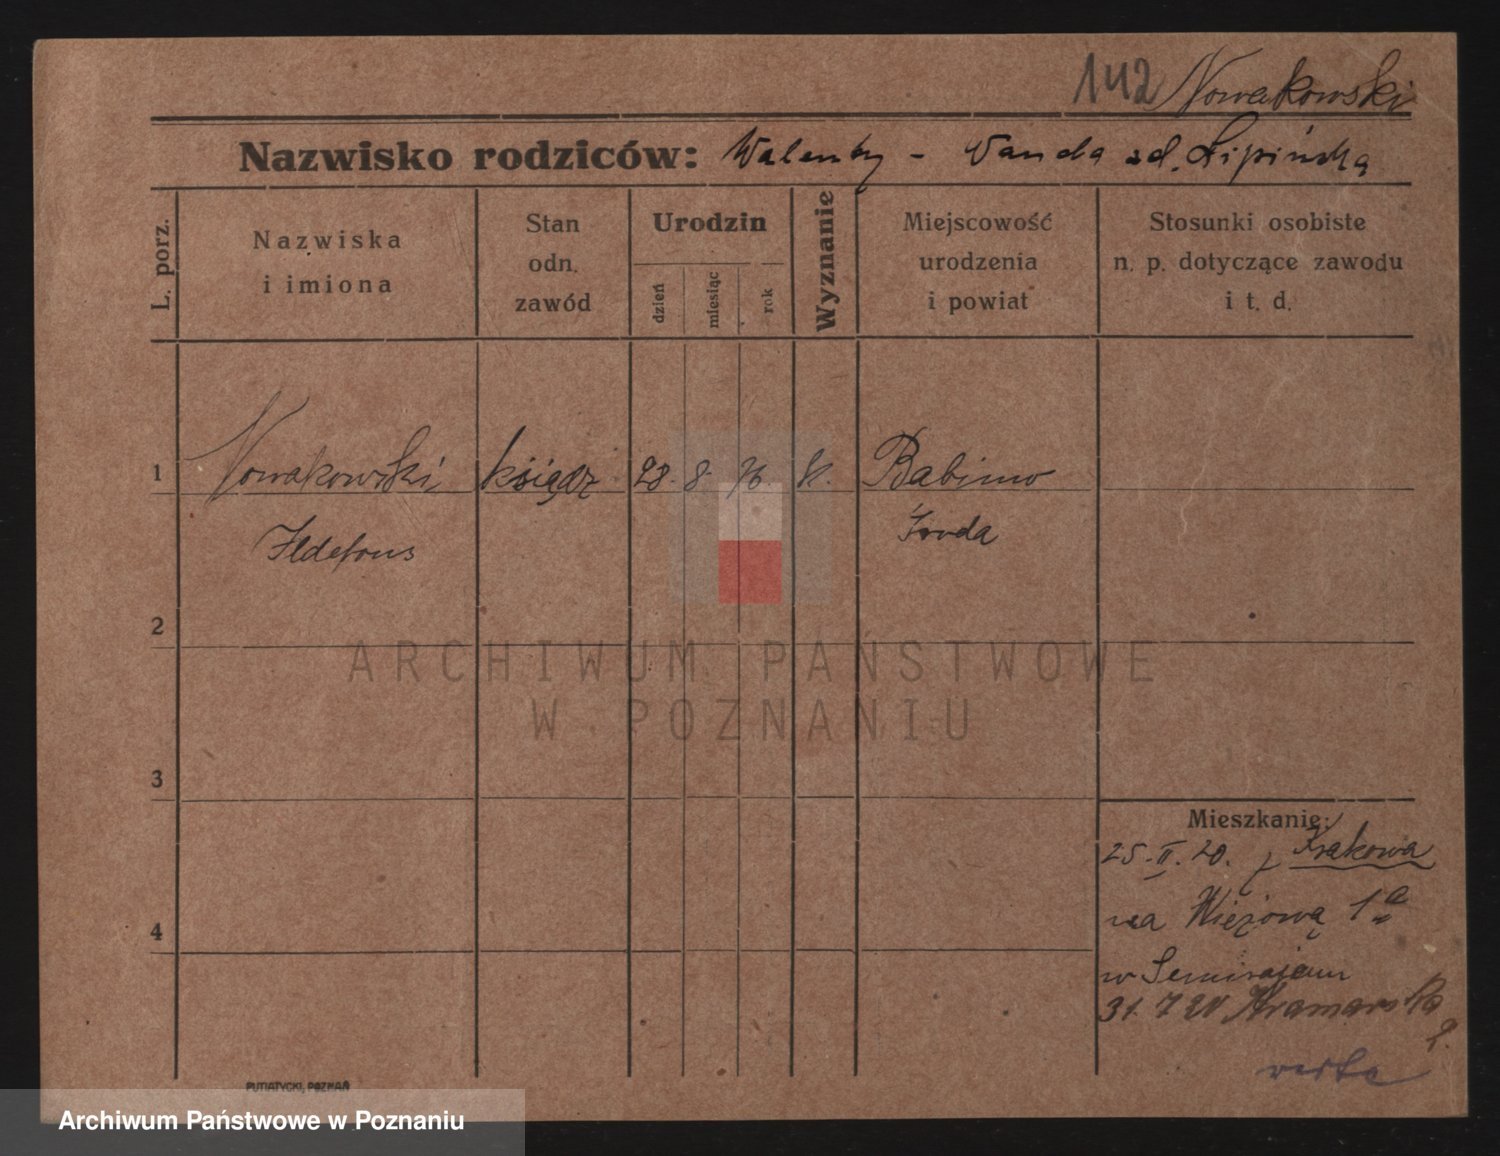 142 Nowakowski
Nazwisko rodziców: Walenty - Wanda zd. Lipińska
L. porz.
Nazwiska
i imiona
Stan
odn.
zawód
Urodzin
dzień
miesiąc
rok
Wyznanie
Miejscowość
urodzenia
i powiat
Stosunki osobiste
n. p. dotyczące zawodu
i t. d.
1 Nowakowski ksiądz 28. 8. 76. k. Babimo
Ildefons Środa
2
ARCHIWUM PAŃSTWOWE
W POZNANIU
3
Mieszkanie:
25. II. 20. z Krakowa
4 na Wieżową 1a
w Seminarjum
31. 7 20 Kramarska
2.
PUTIATYCKI, POZNAŃ
Archiwum Państwowe w Poznaniu